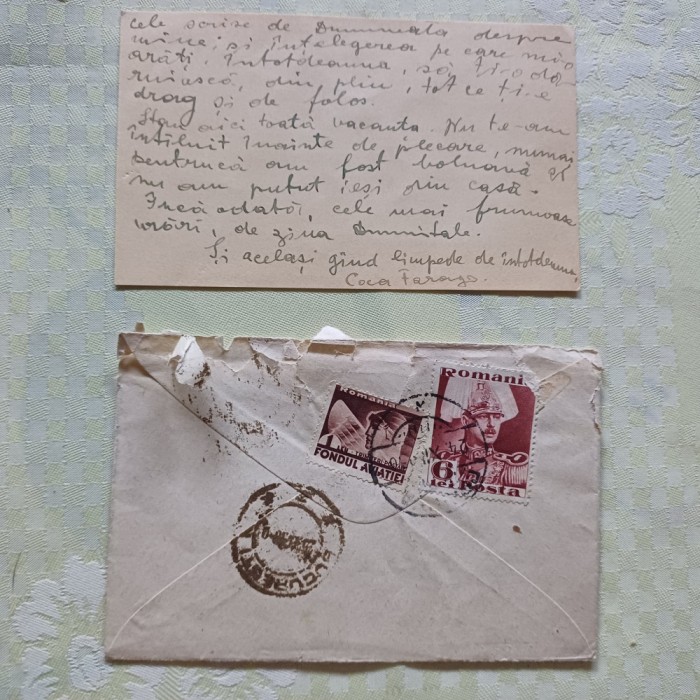 cele scrise de Dumneata despre
mine, și înțelegerea pe care mi-o
arăți, întotdeauna, să ți-o dă-
ruiască, din plin, tot ce ți-e
drag și de folos.
Stau aici toată vacanța. Nu te-am
întîlnit înainte de plecare, numai
pentrucă am fost bolnavă și
nu am putut ieși din casă.
Încă odată, cele mai frumoase
urări, de ziua Dumitale.
Și același gînd limpede de întotdeauna,
Coca Farago.
Romania
1 LEU
FONDUL AVIATIEI
Romania
6
lei Posta
BUCURESTI